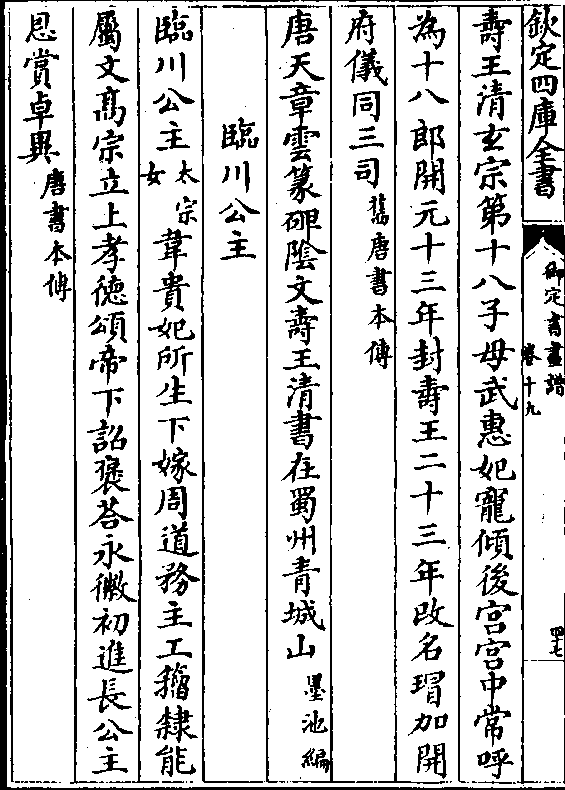 欽定四庫全書
御定書畫譜
卷十九
四七
壽王清玄宗第十八子母武惠妃寵傾後宮宮中常呼
為十八郎開元十三年封壽王二十三年改名瑁加開
府儀同三司舊唐書本傳
唐天章雲篆碑陰文壽王清書在蜀州青城山墨池編
臨川公主
臨川公主太宗女韋貴妃所生下嫁周道務主工籀隸能
屬文高宗立上孝德頌帝下詔褒荅永徽初進長公主
恩賞卓異唐書本傳